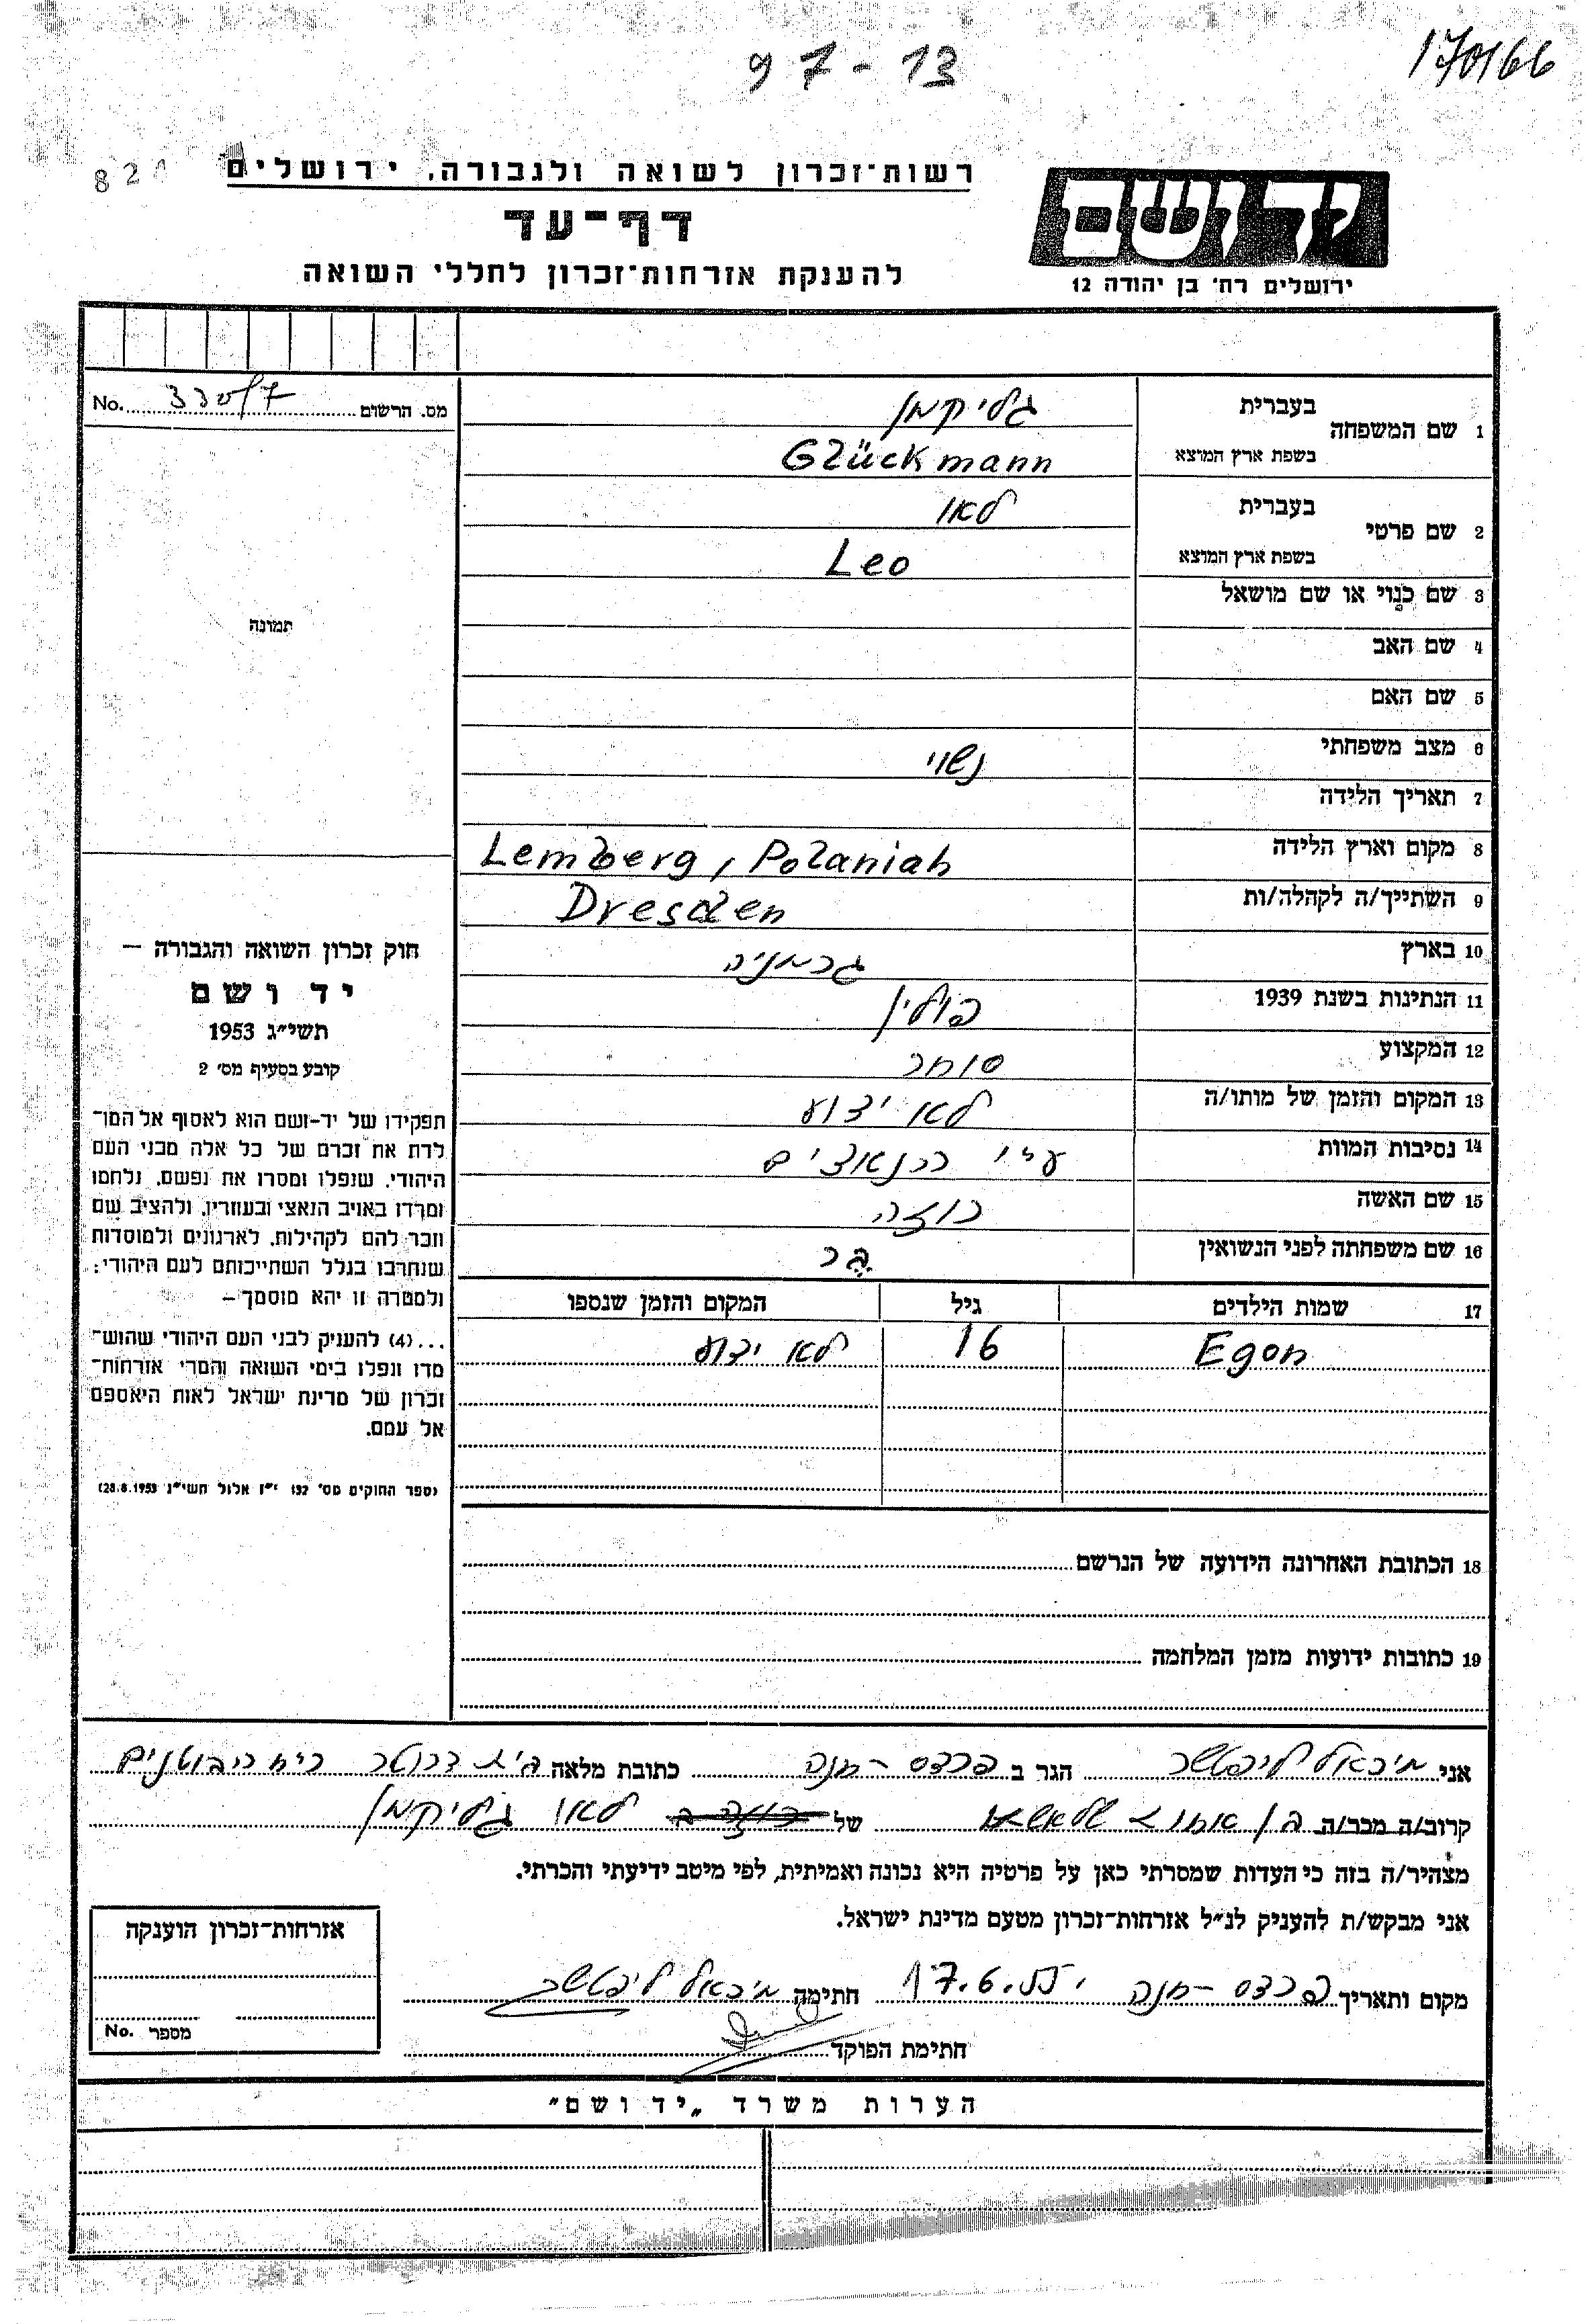 97-13
170166
820
רשות־זכרון לשואה ולגבורה, ירושלים
דף־עד
להענקת אזרחות־זכרון לחללי השואה
יד ושם
ירושלים רח' בן יהודה 12
מס. הרשום No. 330/7
1 שם המשפחה
בעברית גליקמן
בשפת ארץ המוצא Glückmann
2 שם פרטי
בעברית לאו
בשפת ארץ המוצא Leo
3 שם כנוי או שם מושאל
4 שם האב
5 שם האם
6 מצב משפחתי נשוי
7 תאריך הלידה
8 מקום וארץ הלידה Lemberg, Polaniah
9 השתייך/ה לקהלה/ות Dresden
10 בארץ גרמניה
11 הנתינות בשנת 1939 פולין
12 המקצוע סוחר
13 המקום והזמן של מותו/ה לא ידוע
14 נסיבות המוות ע"י הנאצים
15 שם האשה רוזה
16 שם משפחתה לפני הנשואין
17 שמות הילדים גיל המקום והזמן שנספו
Egon 16 לא ידוע
18 הכתובת האחרונה הידועה של הנרשם
19 כתובות ידועות מזמן המלחמה
תמונה
חוק זכרון השואה והגבורה –
יד ושם
תשי"ג 1953
קובע בסעיף מס' 2
תפקידו של יד-ושם הוא לאסוף אל המו־
לדת את זכרם של כל אלה מבני העם
היהודי, שנפלו ומסרו את נפשם, נלחמו
ומרדו באויב הנאצי ובעוזריו, ולהציב שם
וזכר להם לקהילות, לארגונים ולמוסדות
שנחרבו בגלל השתייכותם לעם היהודי;
ולמטרה זו יהא מוסמך –
...(4) להעניק לבני העם היהודי שהוש־
מדו ונפלו בימי השואה והמרי אזרחות־
זכרון של מדינת ישראל לאות היאספם
אל עמם.
(ספר החוקים מס' 132 י"ז אלול תשי"ג 28.8.1953)
אני מיכאל ליפטשר הגר ב פרדס-חנה כתובת מלאה
קרוב/ה מכר/ה בן של לאו גליקמן
מצהיר/ה בזה כי העדות שמסרתי כאן על פרטיה היא נכונה ואמיתית, לפי מיטב ידיעתי והכרתי.
אני מבקש/ת להעניק לנ"ל אזרחות־זכרון מטעם מדינת ישראל.
מקום ותאריך פרדס-חנה, 17.6.55 חתימה מיכאל ליפטשר
חתימת הפוקד
אזרחות־זכרון הוענקה
מספר No.
הערות משרד „יד ושם"